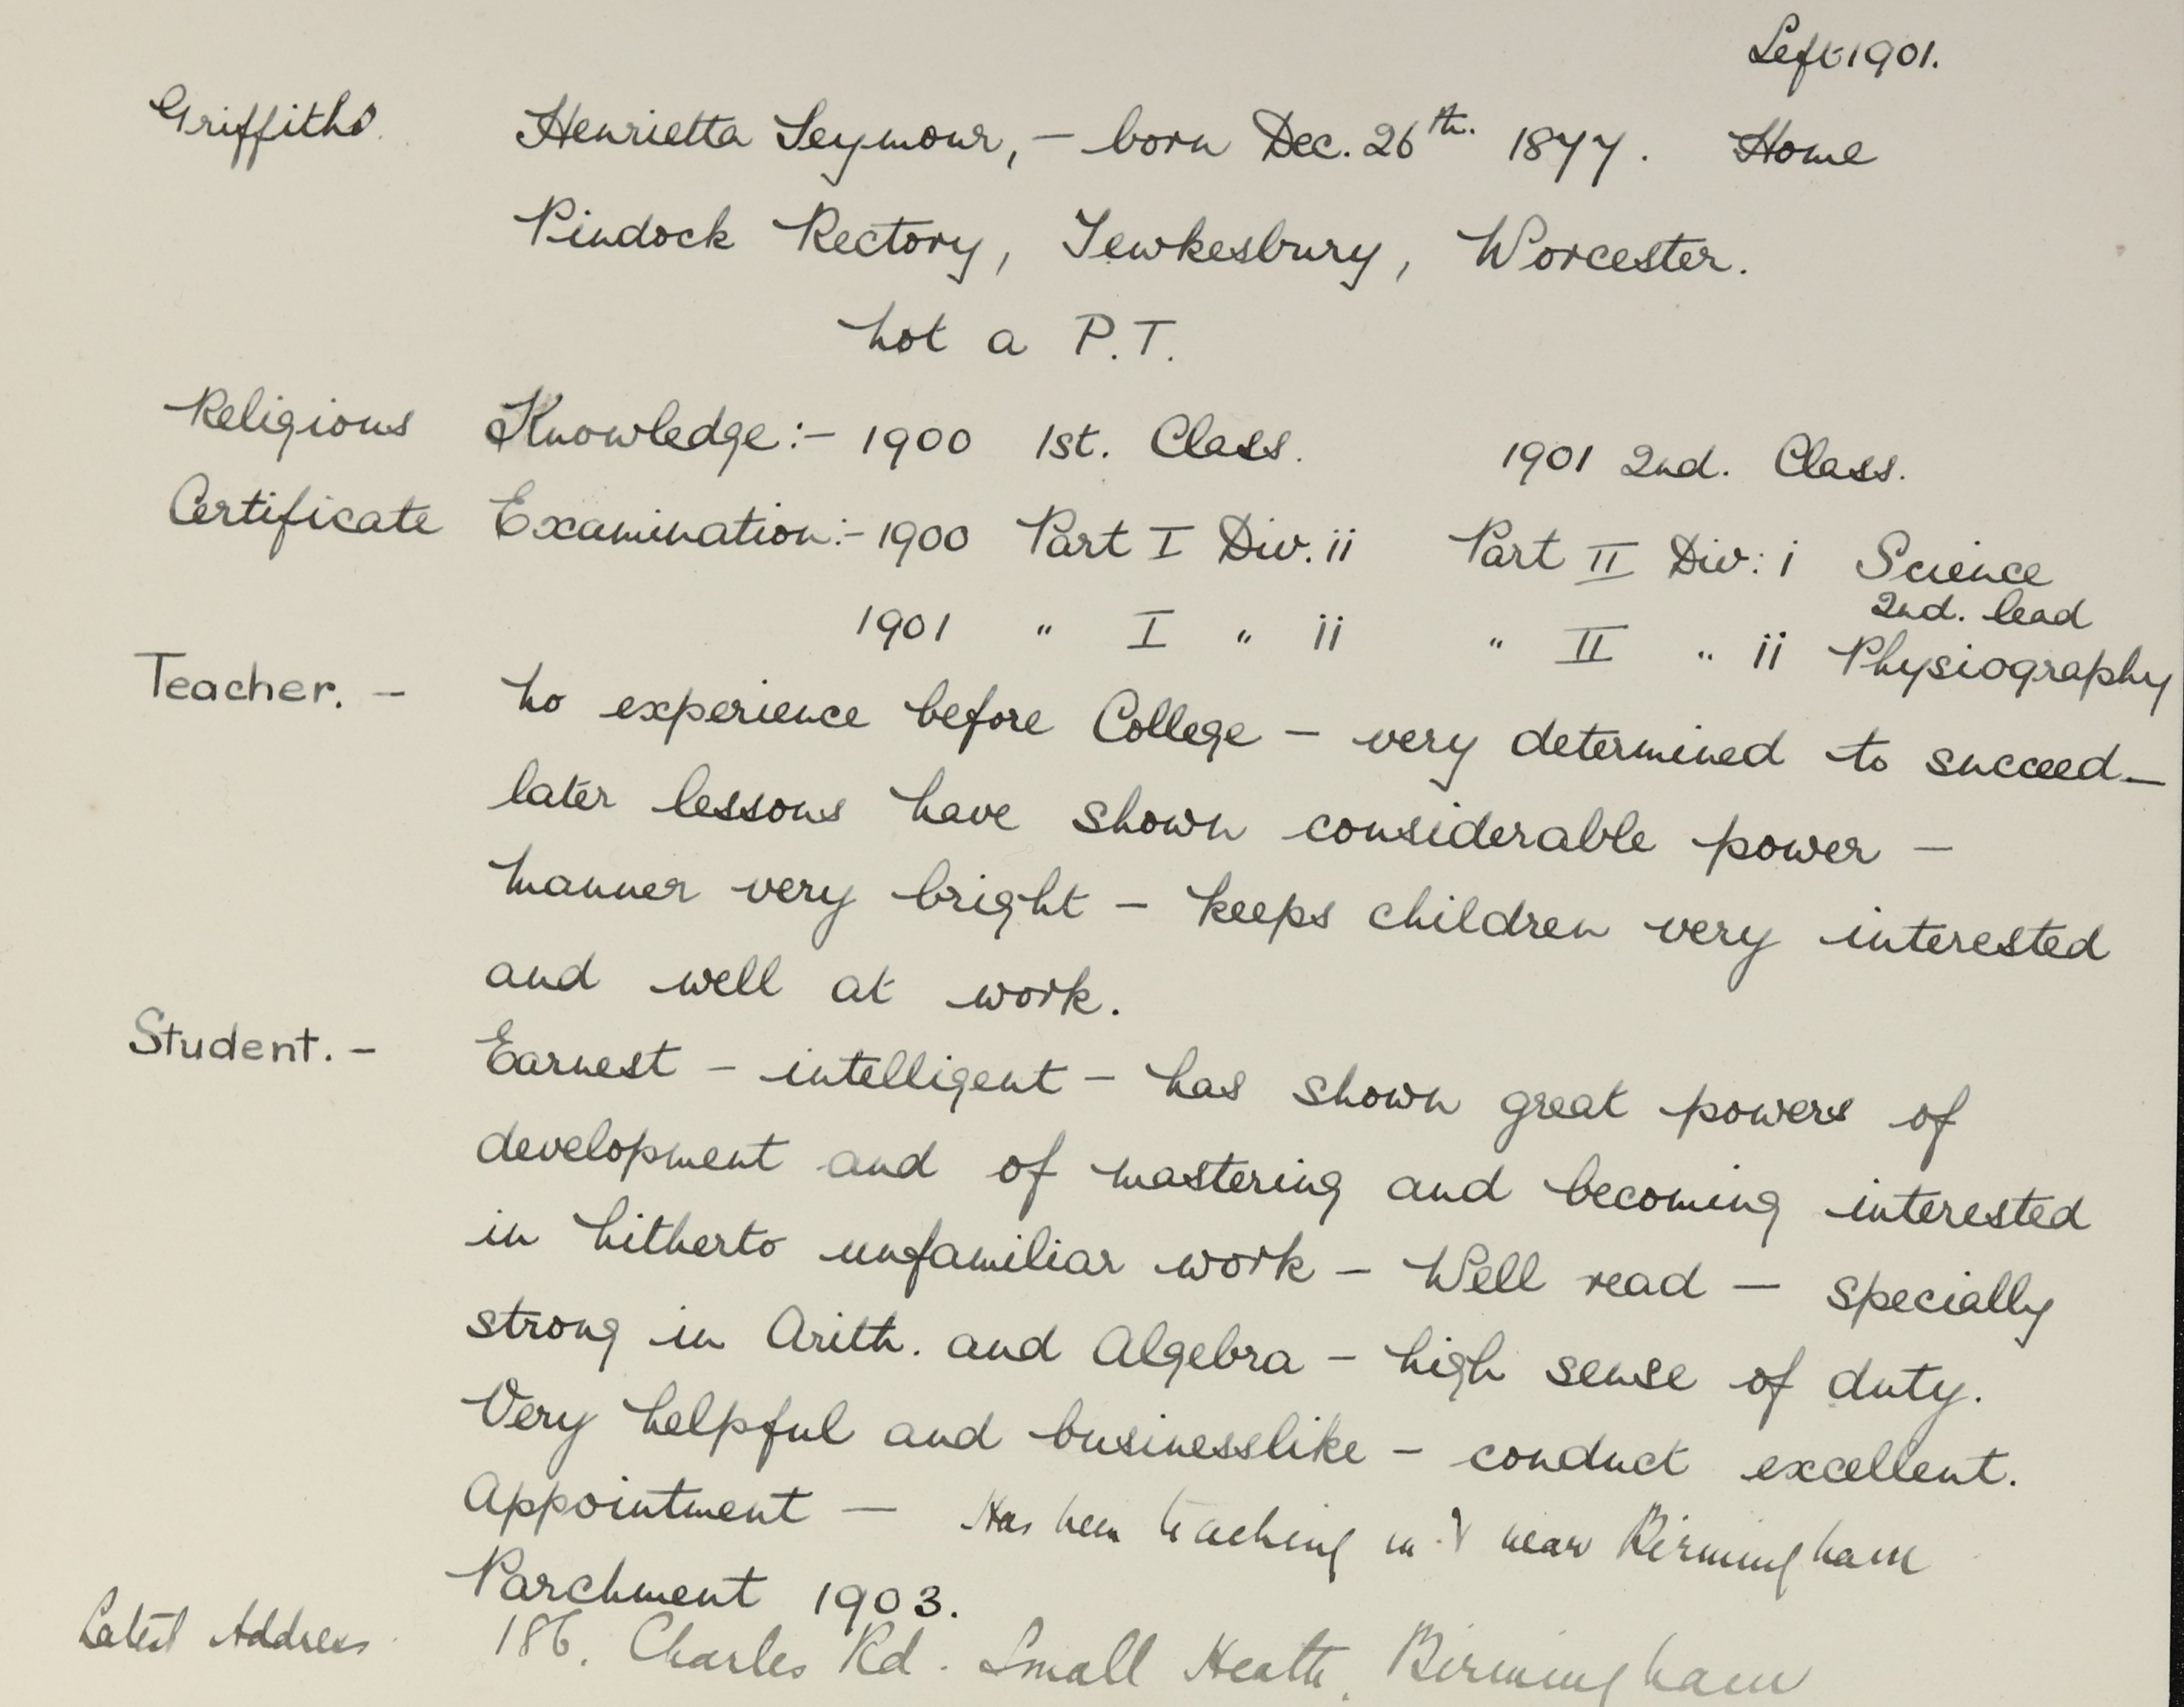 Left 1901.
Griffiths. Henrietta Seymour, – born Dec. 26th. 1877. Home
Pindock Rectory, Tewkesbury, Worcester.
Not a P.T.
Religious Knowledge:- 1900 1st. Class. 1901 2nd. Class.
Certificate Examination:- 1900 Part I Div. ii Part II Div: i Science
2nd. lead
1901 " I " ii " II " ii Physiography
Teacher. – No experience before College – very determined to succeed –
later lessons have shown considerable power –
manner very bright – keeps children very interested
and well at work.
Student. – Earnest – intelligent – has shown great powers of
development and of mastering and becoming interested
in hitherto unfamiliar work – Well read – specially
strong in Arith. and Algebra – high sense of duty.
Very helpful and businesslike – conduct excellent.
Appointment – Has been teaching in & near Birmingham
Parchment 1903.
Latest Address. 186, Charles Rd. Small Heath, Birmingham